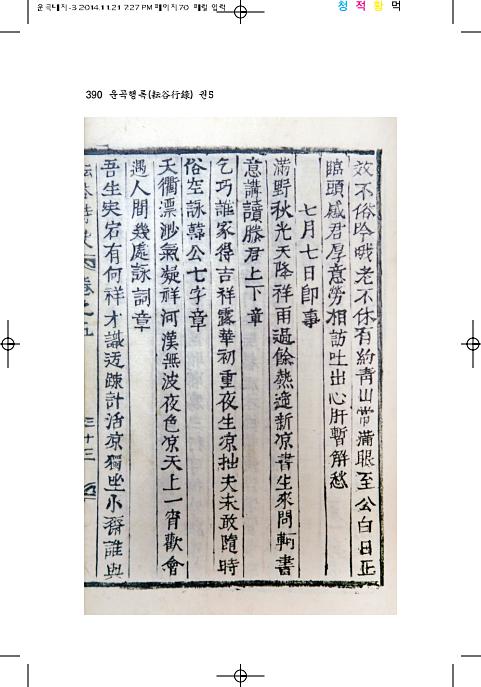 운곡대지-3 2014.11.21 7:27 PM 페이지70 매킬 입력
청 적 황 먹
390 운곡행록(耘谷行錄) 권5
效不俗吟哦老不休有約靑山常滿眼至公白日正
臨頭感君厚意勞相訪吐出心肝暫解愁
七月七日卽事
滿野秋光天降祥雨過餘熱遞新凉書生來問輀書
意講讀滕君上下章
乞巧誰家得吉祥露華初重夜生凉拙夫未敢隨時
俗空詠韓公七字章
天衢漂渺氣凝祥河漢無波夜色凉天上一宵歡會
遇人間幾處詠詞章
吾生宕有何祥才識迃踈計活凉獨坐小齋誰與
卷之五 三十三